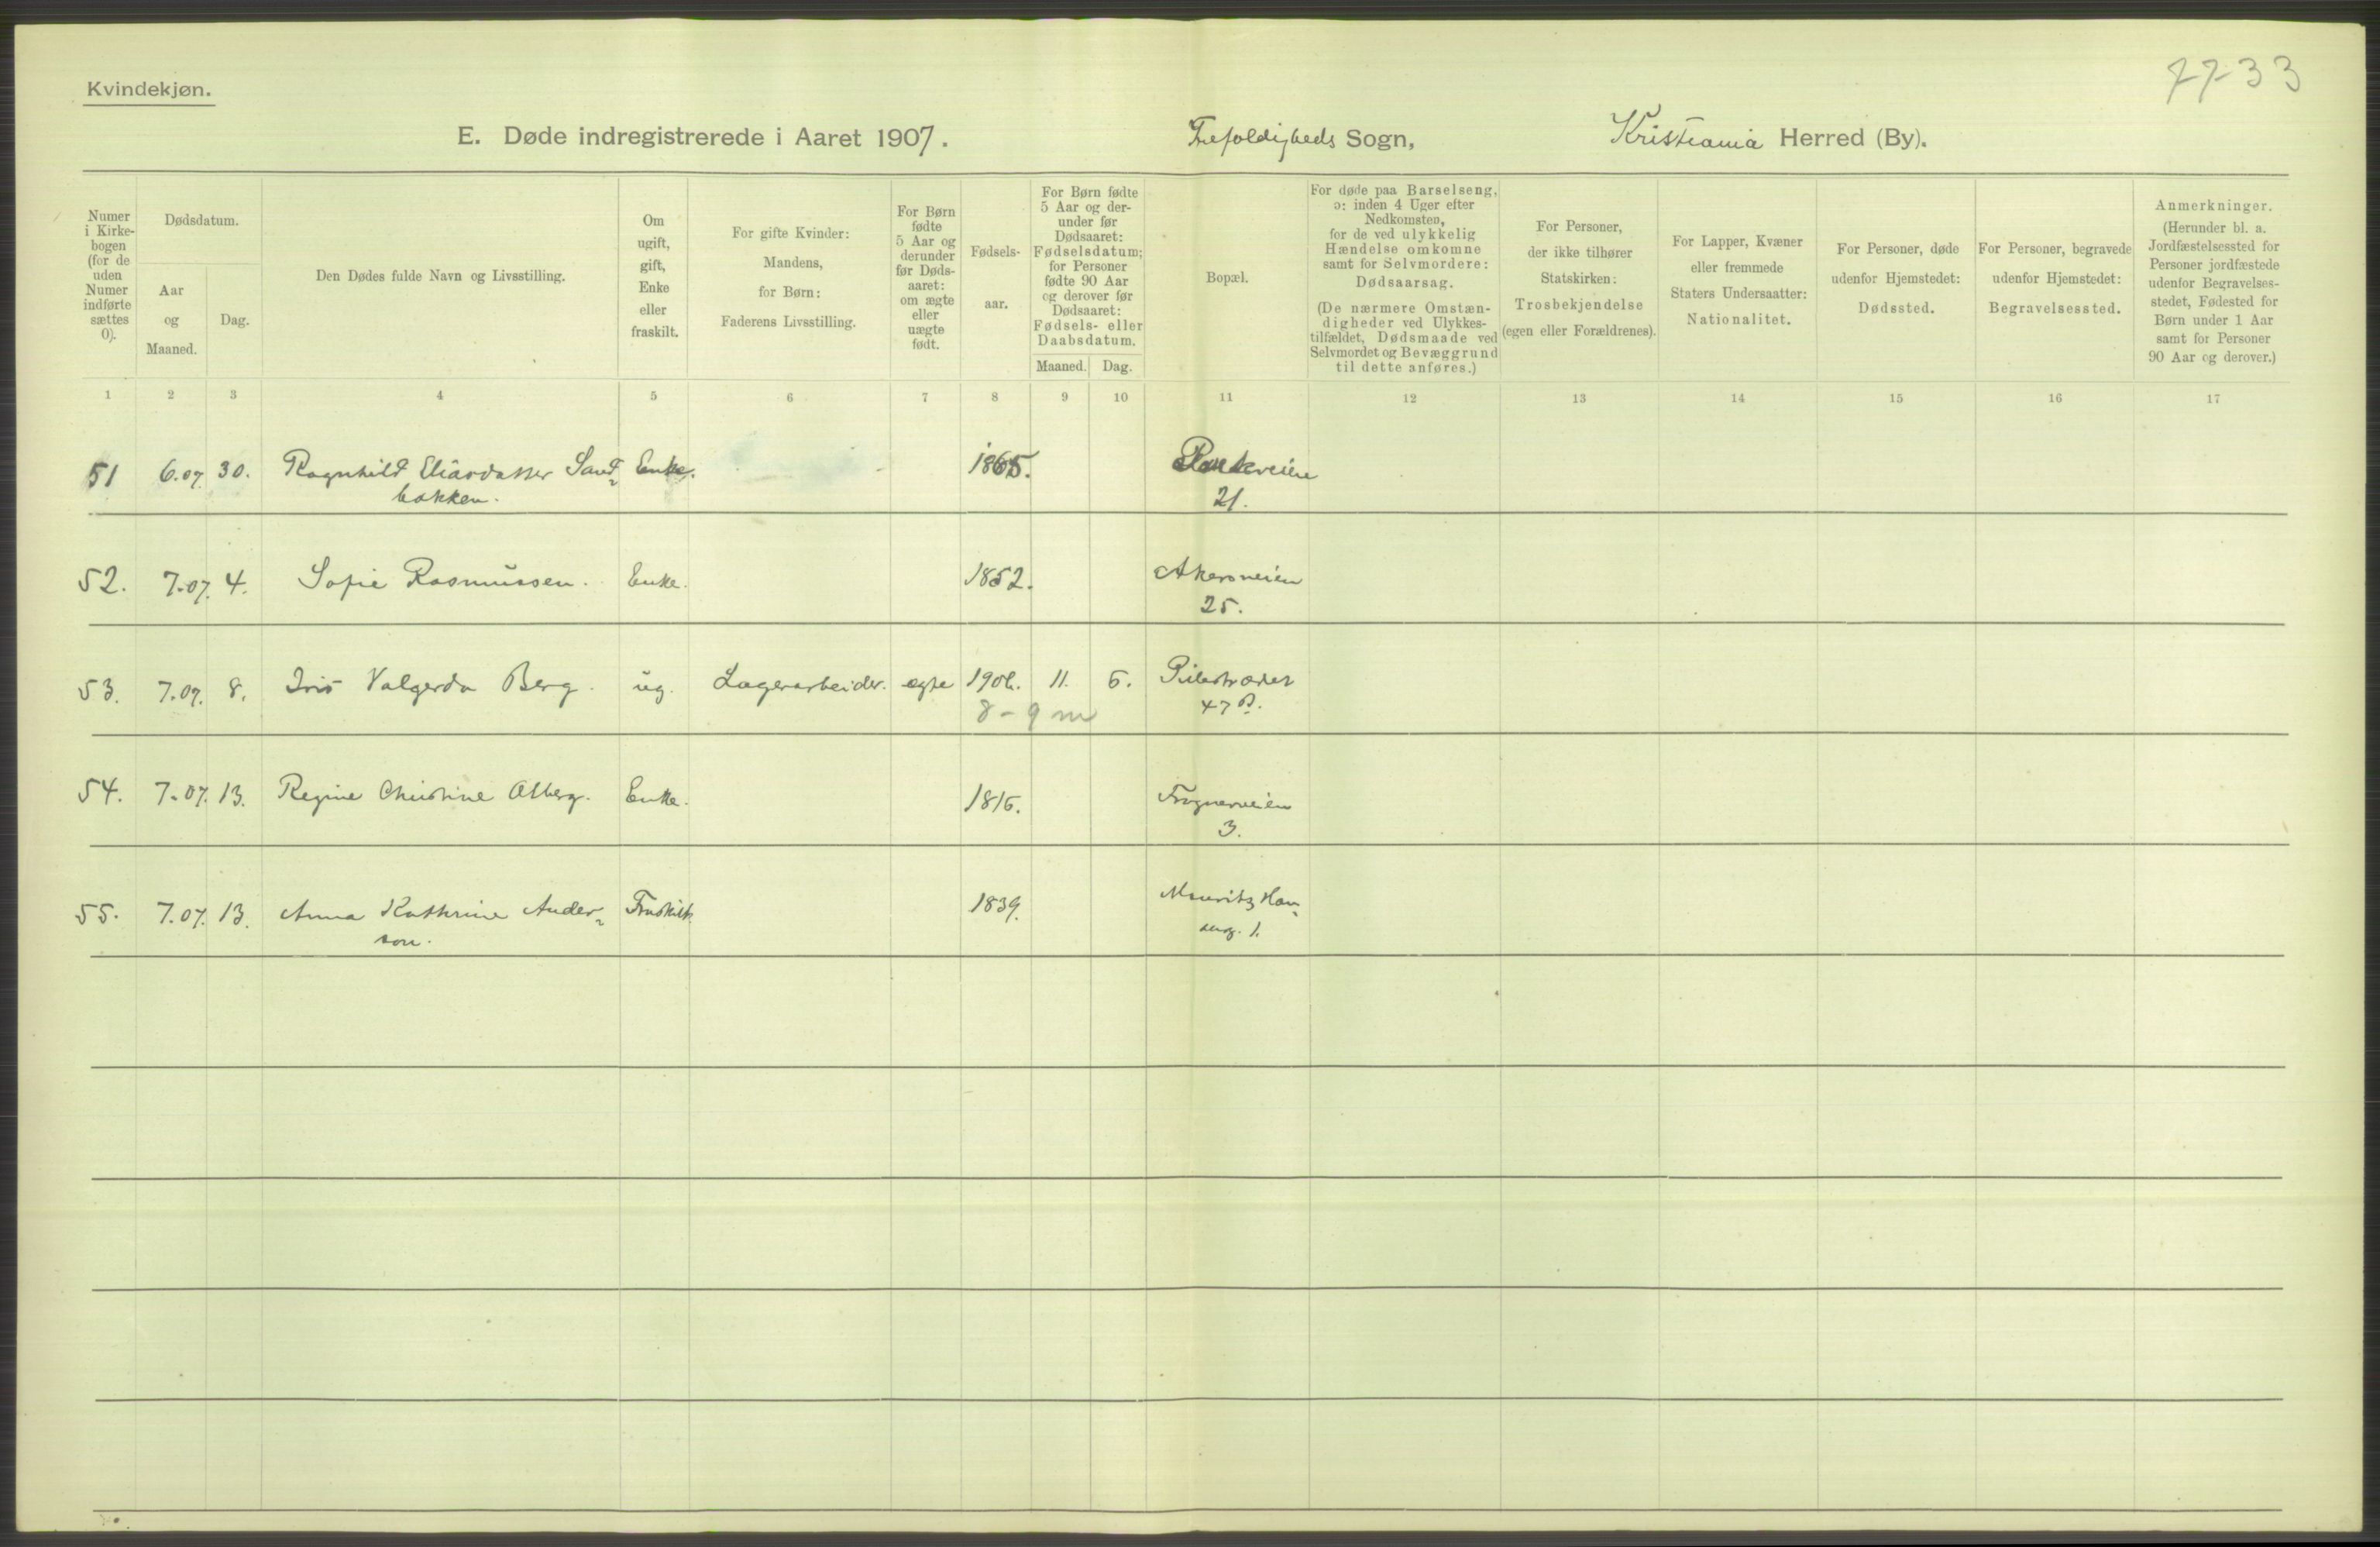 7733
Kvindekjøn.
E. Døde indregistrerede i Aaret 1907. Trefoldigheds Sogn, Kristiania Herred (By).
Numer
i Kirke-
bogen
(for de
uden
Numer
indførte
sættes
0).
Dødsdatum.
Aar
og
Maaned.
Dag.
Den Dødes fulde Navn og Livsstilling.
Om
ugift,
gift,
Enke
eller
fraskilt.
For gifte Kvinder:
Mandens,
for Børn:
Faderens Livsstilling.
For Børn
fødte
5 Aar og
derunder
før Døds-
aaret:
om ægte
eller
uægte
født.
Fødsels-
aar.
For Børn fødte
5 Aar og der-
under før
Dødsaaret:
Fødselsdatum;
for Personer
fødte 90 Aar
og derover før
Dødsaaret:
Fødsels- eller
Daabsdatum.
Maaned. Dag.
Bopæl.
For døde paa Barselseng,
ɔ: inden 4 Uger efter
Nedkomsten,
for de ved ulykkelig
Hændelse omkomne
samt for Selvmordere:
Dødsaarsag.
(De nærmere Omstæn-
digheder ved Ulykkes-
tilfældet, Dødsmaade ved
Selvmordet og Bevæggrund
til dette anføres.)
For Personer,
der ikke tilhører
Statskirken:
Trosbekjendelse
(egen eller Forældrenes).
For Lapper, Kvæner
eller fremmede
Staters Undersaatter:
Nationalitet.
For Personer, døde
udenfor Hjemstedet:
Dødssted.
For Personer, begravede
udenfor Hjemstedet:
Begravelsessted.
Anmerkninger.
(Herunder bl. a.
Jordfæstelsessted for
Personer jordfæstede
udenfor Begravelses-
stedet, Fødested for
Børn under 1 Aar
samt for Personer
90 Aar og derover.)
1 2 3 4 5 6 7 8 9 10 11 12 13 14 15 16 17
51 6.07. 30. Ragnhild Sand- Enke. 1865. Parkveien
bakken. 21.
52. 7.07. 4. Sofie Rasmussen. Enke. 1852. Akersveien
25.
53. 7.07. 8. Iris Valgerda Berg. ug. Lagerarbeider. ægte 1906. 11. 5. Pilestrædet
8-9 m 47 B.
54. 7.07. 13. Regine Christine Alberg. Enke. 1816. Frognerveien
3.
55. 7.07. 13. Anna Kathrine Ander- Fraskilt. 1839. Mauritz Han-
son. sensg. 1.